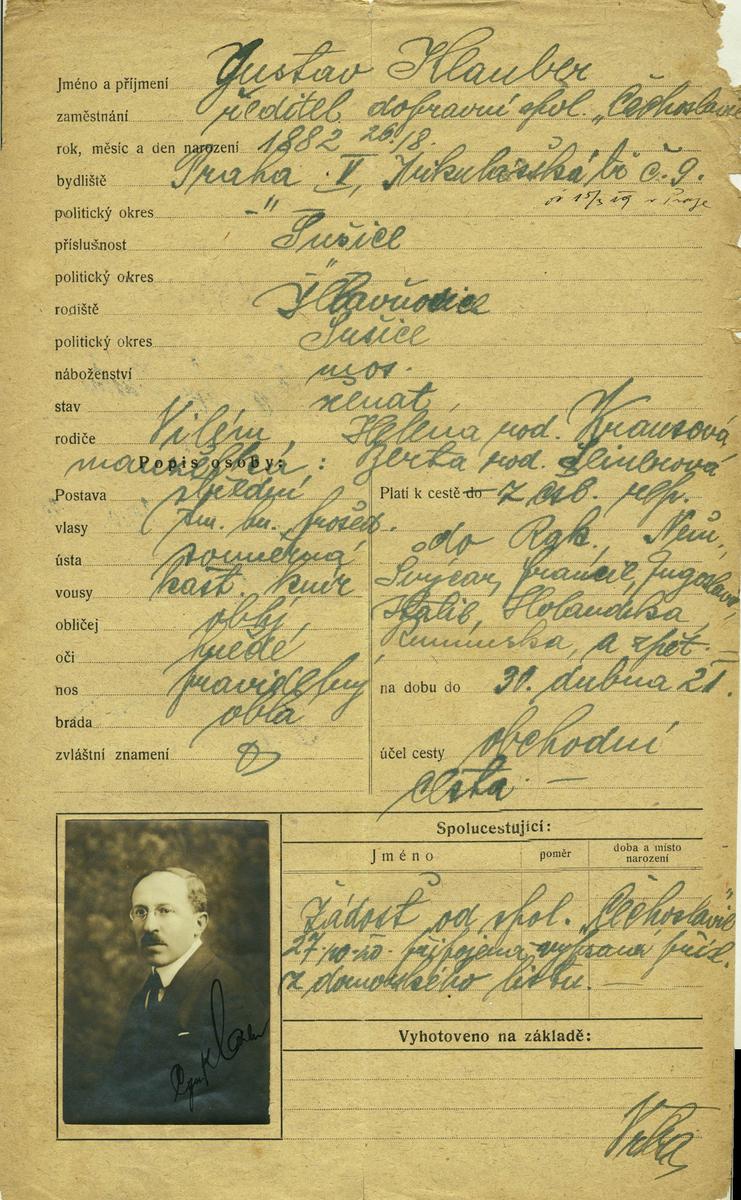 Jméno a příjmení Gustav Klauber
zaměstnání ředitel dopravní spol. „Čechoslavie
rok, měsíc a den narození 1882 26./8.
bydliště Praha V, Mikulášská tř. č. 9.
politický okres –"–
příslušnost Sušice
politický okres "
rodiště Hlavňovice
politický okres Sušice
náboženství mos.
stav ženat,
rodiče Vilém, Helena rod. Krausová
manželka: Berta rod.
Popis osoby:
Postava střední
vlasy tm. bn. prošed.
ústa souměrná
vousy kašt. knír
obličej oblý
oči hnědé
nos pravidelný
brada oblá
zvláštní znamení
Platí k cestě do z čsl. rep.
do Rak., Něm.,
Švýcar, Francie, Jugoslavie,
Italie, Holandska,
Rumunska, a zpět. —
na dobu do 30. dubna 21.
účel cesty obchodní
cesta. —
Spolucestující:
Jméno poměr doba a místo narození
Žádost od spol. „Čechoslavie"
27./10.20. připojena
z domovského listu. —
Vyhotoveno na základě: